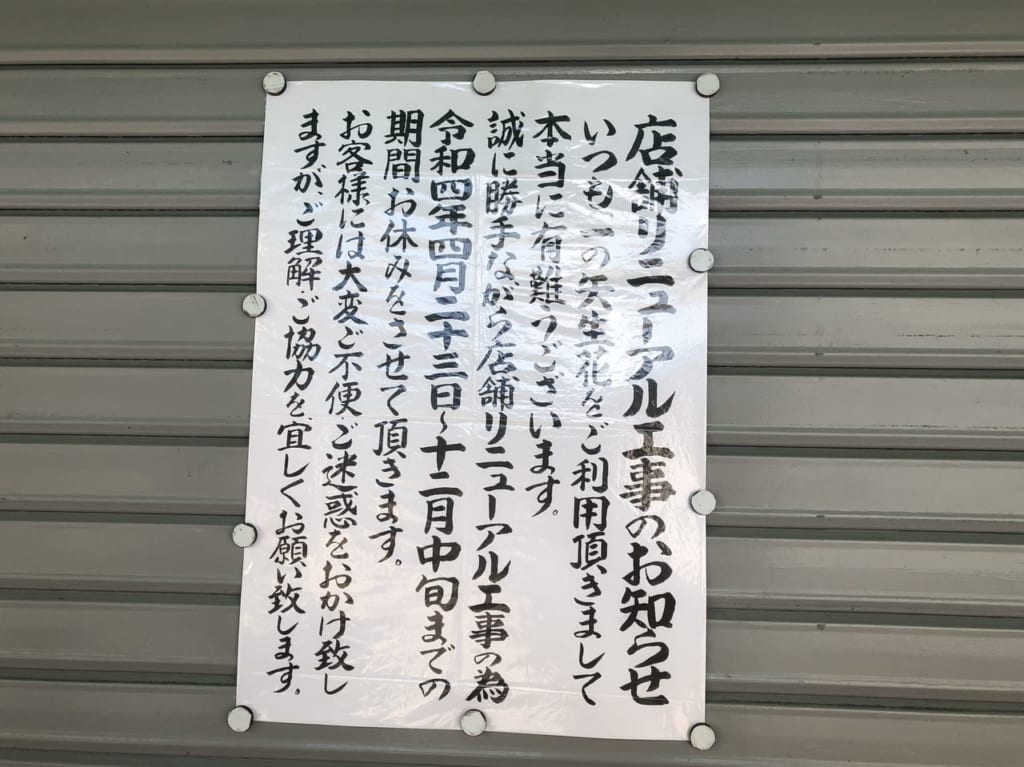 店舗リニューアル工事のお知らせ
いつも、一の矢生花をご利用頂きまして
本当に有難うございます。
誠に勝手ながら店舗リニューアル工事の為
令和四年四月二十三日~十二月中旬までの
期間お休みをさせて頂きます。
お客様には大変ご不便、ご迷惑をおかけ致し
ますが、ご理解、ご協力を宜しくお願い致します。